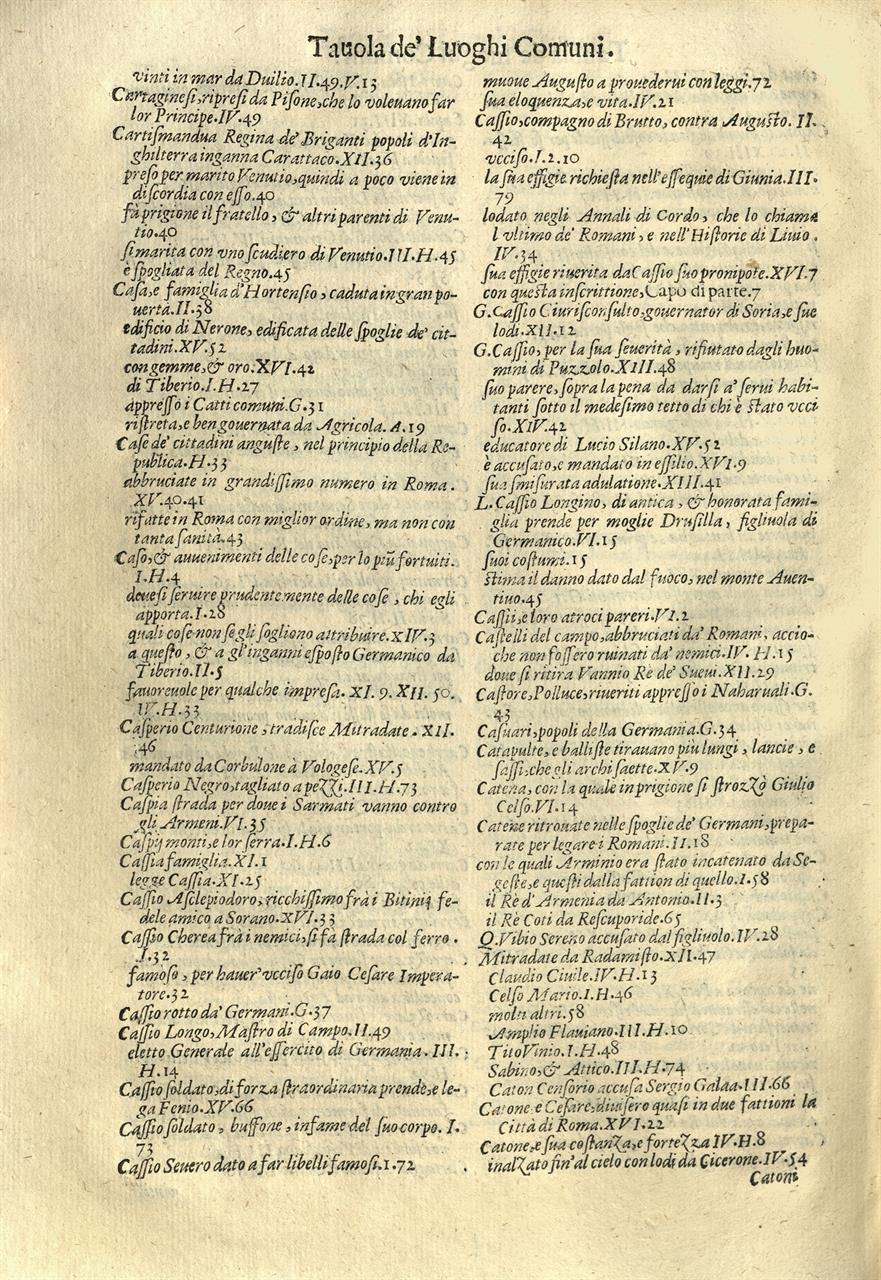 Tauola de' Luoghi Comuni.
vinti in mar da Duilio.II.49.V.13
Cartaginesi, ripresi da Pisone, che lo voleuano far
lor Principe.IV.49
Cartismandua Regina de' Briganti popoli d'In-
ghilterra inganna Carattaco.XII.36
preso per marito Venutio, quindi a poco viene in
discordia con esso.40
fà prigione il fratello, & altri parenti di Venu-
tio.40
si marita con vno scudiero di Venutio.III.H.45
è spogliata del Regno.45
Casa, e famiglia d'Hortensio, caduta in gran po-
uertà.II.38
edificio di Nerone, edificata delle spoglie de' cit-
tadini.XV.52
con gemme, & oro.XVI.42
di Tiberio.I.H.27
appresso i Catti comuni.G.31
ristreta, e ben gouernata da Agricola. A.19
Case de' cittadini anguste, nel principio della Re-
publica.H.33
abbruciate in grandissimo numero in Roma.
XV.40.41
rifatte in Roma con miglior ordine, ma non con
tanta sanità.43
Caso, & auuenimenti delle cose, per lo più fortuiti.
I.H.4
deuesi seruire prudentemente delle cose, chi egli
apporta.I.28
quali cose non se gli sogliono attribuire.XIV.3
a questo, & a gl'inganni esposto Germanico da
Tiberio.II.5
fauoreuole per qualche impresa. XI. 9. XII. 50.
IV.H.33
Casperio Centurione, tradisce Mitradate. XII.
46
mandato da Corbulone à Vologese.XV.5
Casperio Negro, tagliato a pezzi.III.H.73
Caspia strada per doue i Sarmati vanno contro
gli Armeni.VI.35
Caspij monti, e lor serra.I.H.6
Cassia famiglia.XI.1
legge Cassia.XI.25
Cassio Asclepiodoro, ricchissimo frà i Bitinij fe-
dele amico a Sorano.XVI.33
Cassio Cherea frà i nemici, si fà strada col ferro.
I.32
famoso, per hauer' vcciso Gaio Cesare Impera-
tore.32
Cassio rotto da' Germani.G.37
Cassio Longo, Mastro di Campo.II.49
eletto Generale all'essercito di Germania. III.
H.14
Cassio soldato, di forza straordinaria prende, e le-
ga Fenio.XV.66
Cassio soldato, buffone, infame del suo corpo. I.
73
Cassio Seuero dato a far libelli famosi.1.72
muoue Augusto a prouederui con leggi.72
sua eloquenza, e vita.IV.21
Cassio, compagno di Brutto, contra Augusto. II.
42
vcciso.I.2.10
la sua effigie richiesta nell'essequie di Giunia.III.
79
lodato negli Annali di Cordo, che lo chiama
l vltimo de' Romani, e nell'Historie di Liuio.
IV.34
sua effigie riuerita da Cassio suo pronipote.XVI.7
con questa inscrittione, Capo di parte.7
G.Cassio Giurisconsulto, gouernator di Soria, e sue
lodi.XII.12
G.Cassio, per la sua seuerità, rifiutato dagli huo-
mini di Puzzolo.XIII.48
suo parere, sopra la pena da darsi a' serui habi-
tanti sotto il medesimo tetto di chi è stato vcci
so.XIV.42
educatore di Lucio Silano.XV.52
è accusato, e mandato in essilio.XVI.9
sua smisurata adulatione.XIII.41
L.Cassio Longino, di antica, & honorata fami-
glia prende per moglie Drusilla, figliuola di
Germanico.VI.15
suoi costumi.15
stima il danno dato dal fuoco, nel monte Auen-
tino.45
Cassii, e loro atroci pareri.VI.2
Castelli del campo, abbruciati da' Romani, accio-
che non fossero ruinati da' nemici.IV. H.15
doue si ritira Vannio Rè de' Sueui.XII.29
Castore, Polluce, riueriti appresso i Naharuali.G.
43
Casuari, popoli della Germania.G.34
Catapulte, e balliste tirauano piu lungi, lancie, e
sassi, che gli archi saette.XV.9
Catena, con la quale in prigione si strozzò Giulio
Celso.VI.14
Catene ritrouate nelle spoglie de' Germani, prepa-
rate per legare i Romani.II.18
con le quali Arminio era stato incatenato da Se-
geste, e questi dalla fattion di quello.I.58
il Rè d'Armenia da Antonio.II.3
il Rè Coti da Rescuporide.65
Q.Vibio Sereno accusato dal figliuolo.IV.28
Mitradate da Radamisto.XII.47
Claudio Ciuile.IV.H.13
Celso Mario.I.H.46
molti altri.58
Amplio Flauiano.III.H.10
Tito Vinio.I.H.48
Sabino, & Attico.III.H.74
Caton Censorio accusa Sergio Galaa.III.66
Catone e Cesare, diuisero quasi in due fattioni la
Città di Roma.XVI.22
Catone, e sua costanza, e fortezza IV.H.8
inalzato fin'al cielo con lodi da Cicerone.IV.54
Catoni